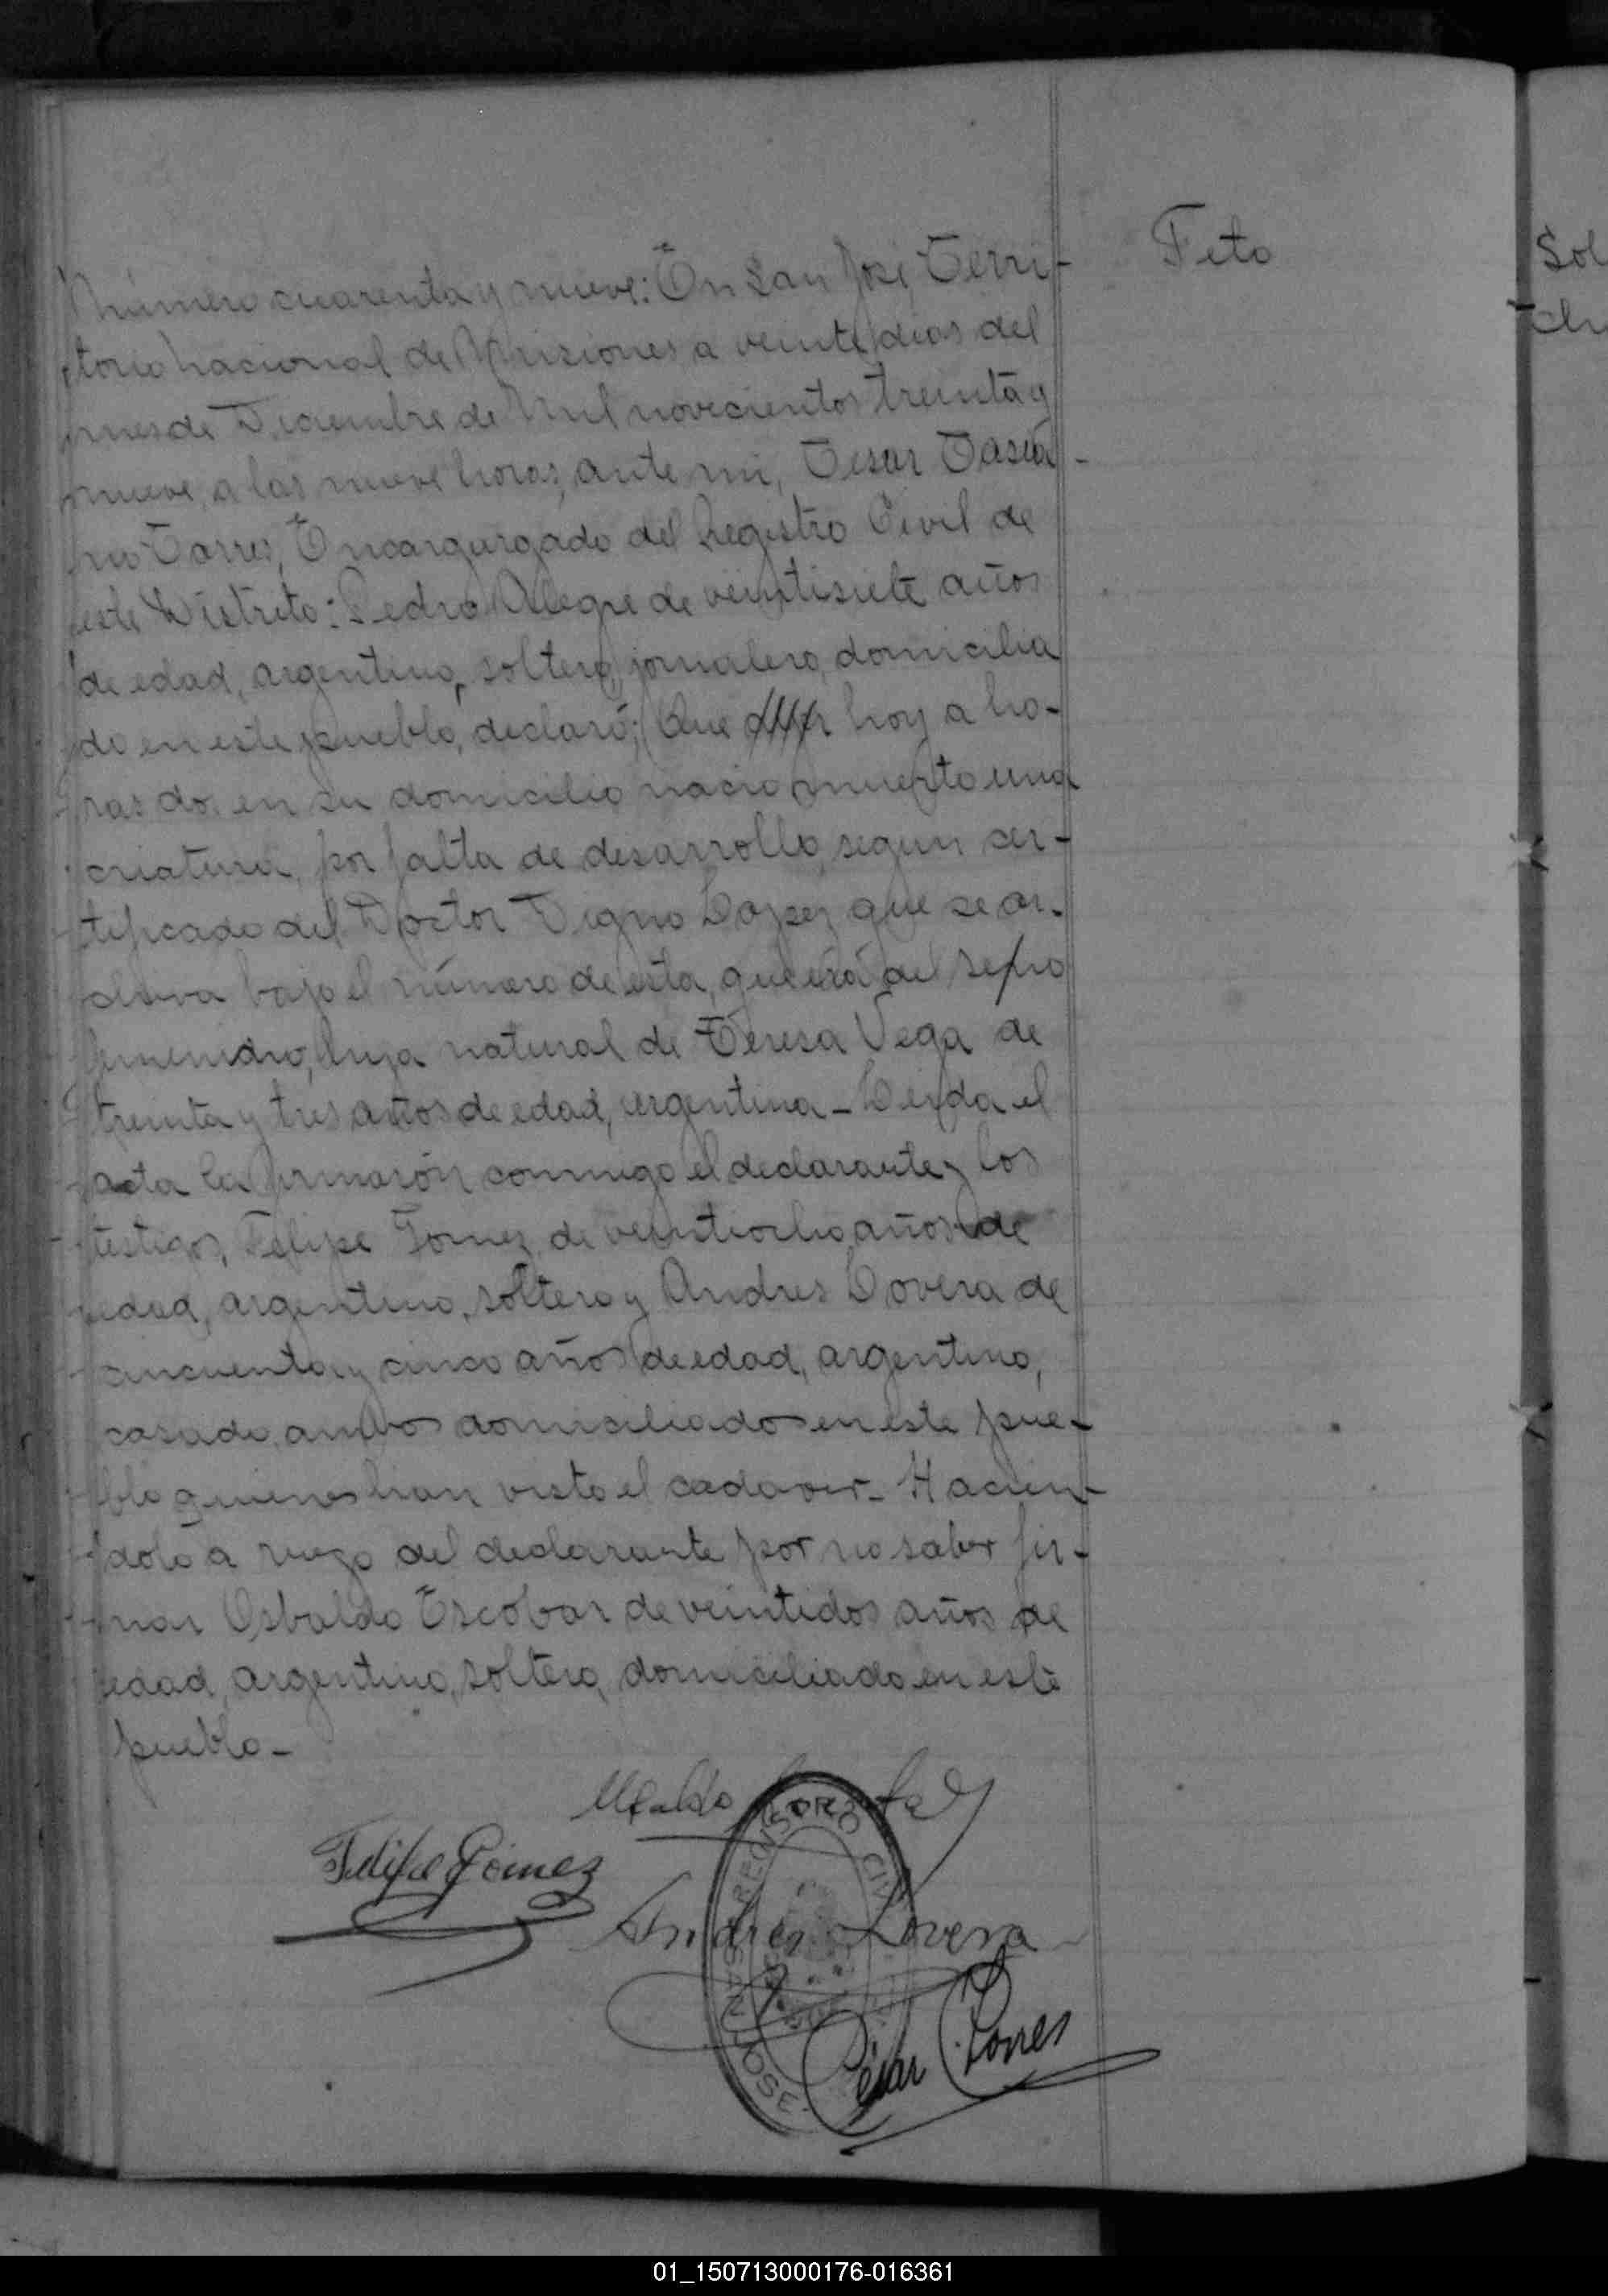 Feto
Número cuarenta y nueve: En San José, Terri-
torio nacional de Misiones a veinte dias del
mes de Diciembre de Mil novecientos treinta y
nueve, a las nueve horas, ante mi, Cesar Casia-
no Torres, Encargurgado del Registro Civil de
este Distrito: Pedro Alegre de veintisiete años
de edad, argentino, soltero, jornalero, domicilia
do en este pueblo, declaró; Que hoy a ho-
ras dos en su domicilio nacio muerto una
criatura, por falta de desarrollo, segun cer-
tificado del Doctor Digno Lopez que se ar-
chiva bajo el número de esta, que era del sexo
femenino, hija natural de Teresa Vega de
treinta y tres años de edad, argentina - Leida el
acta la firmarón conmigo el declarante y los
testigos, Felipe Gomez de veintiocho años de
edad, argentino, soltero y Andres Lovera de
cincuenta y cinco años de edad, argentino,
casado, ambos domiciliados en este pue-
blo quienes han visto el cadaver - Hacien-
dolo a ruego del declarante por no saber fir-
mar Osbaldo Escobar de veintidos años de
edad, argentino, soltero, domiciliado en este
pueblo -
Felipe Gómez
Andres Lovera
REGISTRO CIVIL
SAN JOSE
César Torres
Sol
01_150713000176-016361